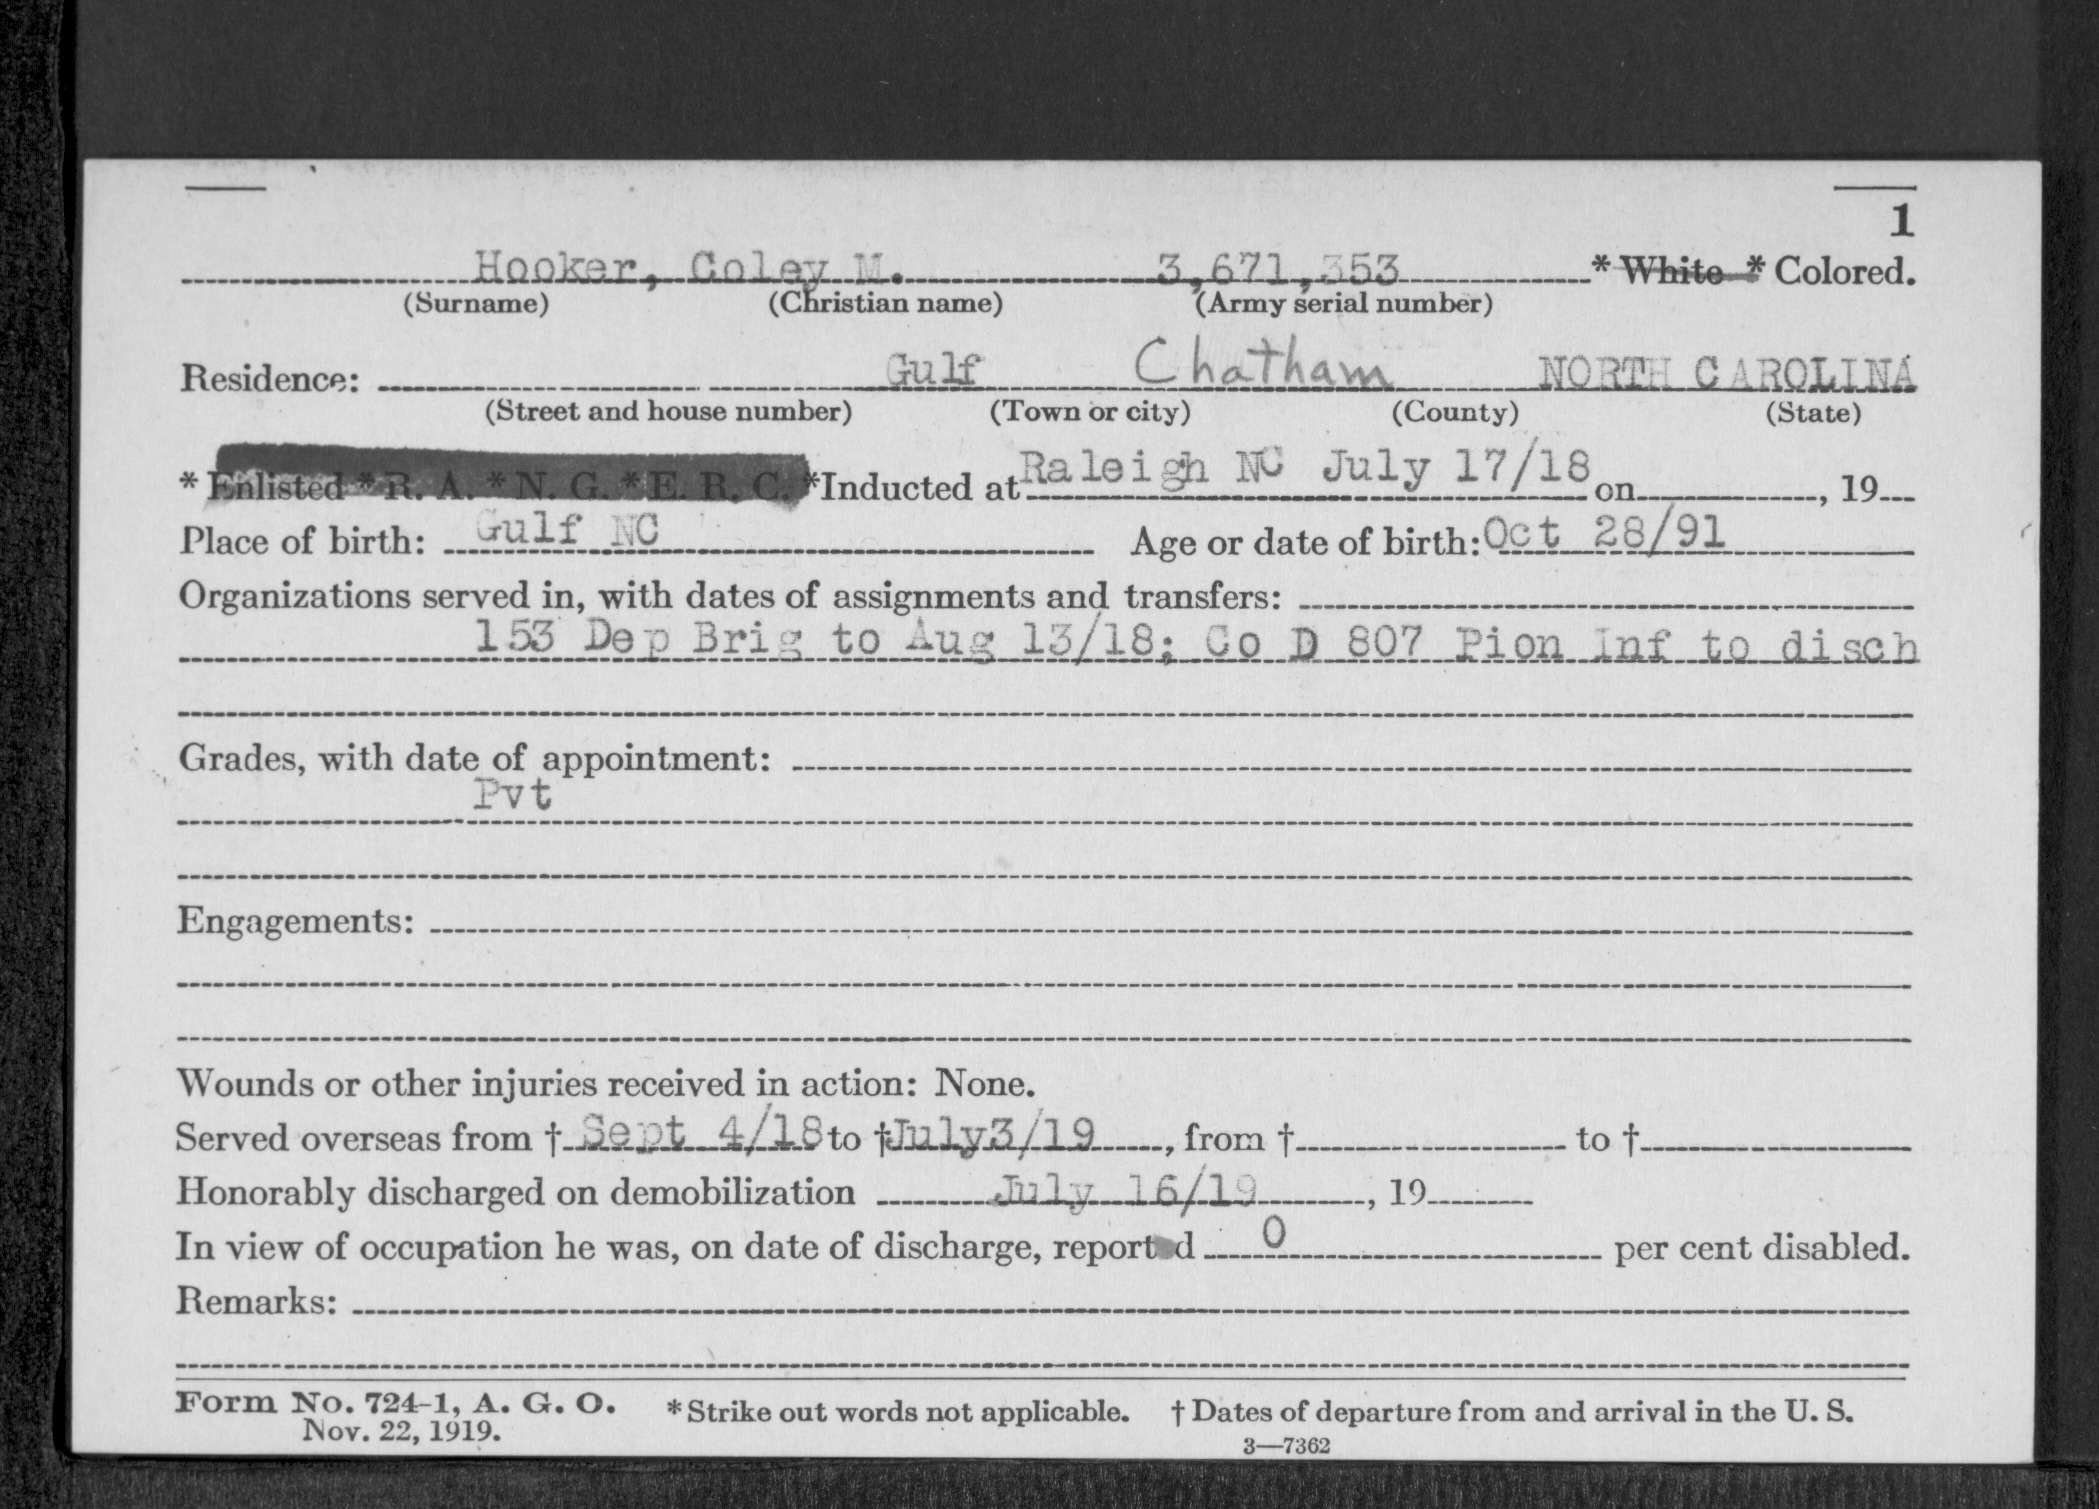 1
Hooker, Coley M. 3,671,353 * White * Colored.
(Surname) (Christian name) (Army serial number)
Residence: Gulf Chatham NORTH CAROLINA
(Street and house number) (Town or city) (County) (State)
* Enlisted * R. A. * N. G. * E. R. C. *Inducted at Raleigh NC July 17/18 on , 19
Place of birth: Gulf NC Age or date of birth: Oct 28/91
Organizations served in, with dates of assignments and transfers:
153 Dep Brig to Aug 13/18; Co D 807 Pion Inf to disch
Grades, with date of appointment:
Pvt
Engagements:
Wounds or other injuries received in action: None.
Served overseas from † Sept 4/18 to † July3/19 , from † to †
Honorably discharged on demobilization July 16/19 , 19
In view of occupation he was, on date of discharge, reported 0 per cent disabled.
Remarks:
Form No. 724-1, A. G. O. * Strike out words not applicable. † Dates of departure from and arrival in the U. S.
Nov. 22, 1919. 3—7362